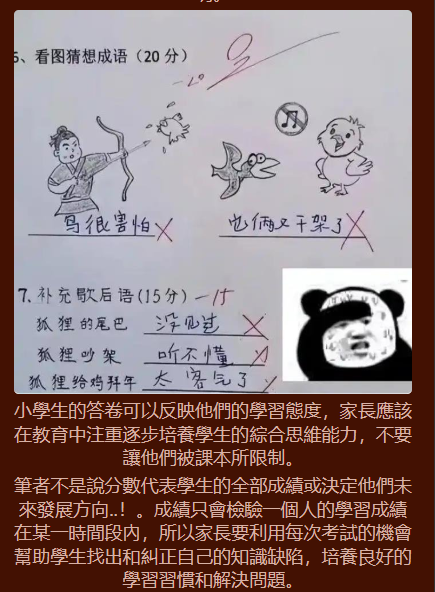 6、看图猜想成语（20分）
-20
鸟很害怕
它俩又干架了
7.补充歇后语(15分) -15
狐狸的尾巴 没见过
狐狸吵架 听不懂
狐狸给鸡拜年 太客气了
小學生的答卷可以反映他們的學習態度，家長應該
在教育中注重逐步培養學生的綜合思維能力，不要
讓他們被課本所限制。
筆者不是說分數代表學生的全部成績或決定他們未
來發展方向..！。成績只會檢驗一個人的學習成績
在某一時間段內，所以家長要利用每次考試的機會
幫助學生找出和糾正自己的知識缺陷，培養良好的
學習習慣和解決問題。